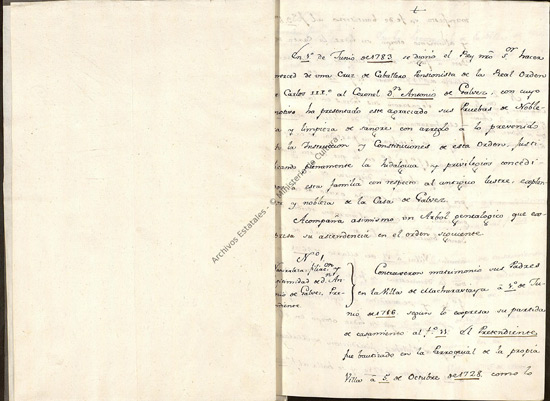 En 1º de Junio de 1783 se dignó el Rey nrô Sor hacer
merced de una Cruz de Caballero Pensionista de la Real Orden
de Carlos III.º al Coronel dn Antonio de Galvez, con cuyo
motivo ha presentado este agraciado sus Pruebas de Noble-
za y limpieza de sangre con arreglo à lo prevenido
la Instruccion y Constituciones de esta Orden, justi-
ficando plenamente la hidalguia y privilegios concedi-
a esta familia con respecto al antiguo lustre, explen-
y nobleza de la Casa de Galvez.
Acompaña asimismo un Arbol genealogico que ex-
presa su ascendencia en el orden siguiente
Nº 1
Naturaleza, filiaon y
legitimidad de d. An-
tonio de Galvez, Pre-
tendiente.
Contraxeron matrimonio sus Padres
en la Villa de Macharavtaya à 3º de Ju-
nio de 1716 segun lo expresa su partida
de casamiento al fº 33. El Pretendiente
fue bautizado en la Parroquial de la propia
Villa à 5 de Octubre de 1728, como lo
Archivos Estatales - © Ministerio de Cultura